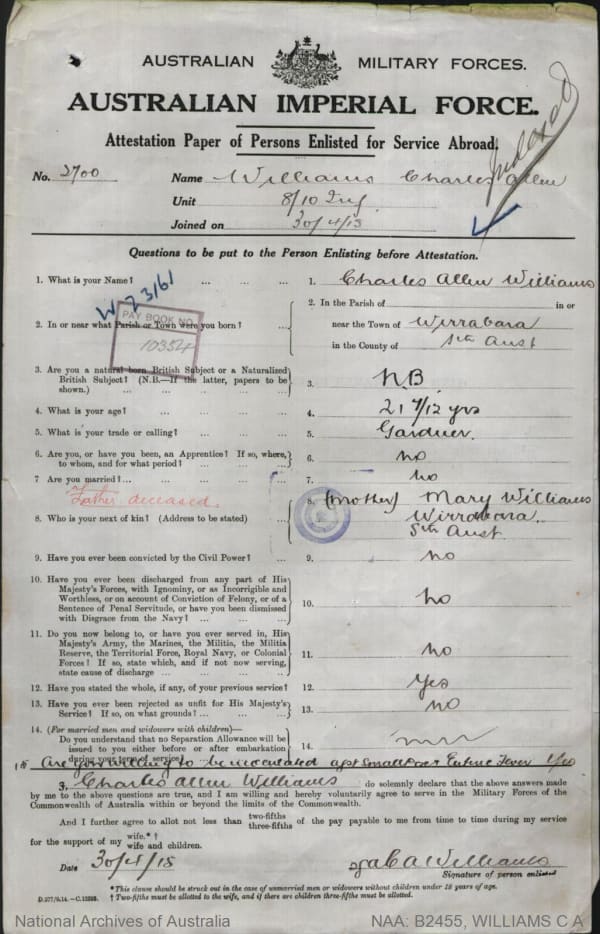 AUSTRALIAN MILITARY FORCES.
AUSTRALIAN IMPERIAL FORCE.
Attestation Paper of Persons Enlisted for Service Abroad.
Indexed
No. 2700 Name Williams Charles Allen
Unit 8/10 Inf
Joined on 30/4/15
Questions to be put to the Person Enlisting before Attestation.
1. What is your Name? ... ... ... 1. Charles Allen Williams
W 23161
PAY BOOK NO.
10354
2. In the Parish of in or
2. In or near what Parish or Town were you born? ... near the Town of Wirrabara
in the County of Sth Aust
3. Are you a natural born British Subject or a Naturalized
British Subject? (N.B.—If the latter, papers to be
shown.) ... ... ... ... ... 3. N.B.
4. What is your age? ... ... ... ... 4. 21 7/12 yrs
5. What is your trade or calling? ... ... ... 5. Gardner
6. Are you, or have you been, an Apprentice? If so, where,
to whom, and for what period? ... ... ... 6. no
7 Are you married?... ... ... ... ... 7. no
Father deceased.
8. (mother) Mary Williams
8. Who is your next of kin? (Address to be stated) ... Wirrabara
Sth Aust.
9. Have you ever been convicted by the Civil Power? ... 9. no
10. Have you ever been discharged from any part of His
Majesty's Forces, with Ignominy, or as Incorrigible and
Worthless, or on account of Conviction of Felony, or of a
Sentence of Penal Servitude, or have you been dismissed
with Disgrace from the Navy? ... ... ... 10. no
11. Do you now belong to, or have you ever served in, His
Majesty's Army, the Marines, the Militia, the Militia
Reserve, the Territorial Force, Royal Navy, or Colonial
Forces? If so, state which, and if not now serving,
state cause of discharge ... ... ... ... 11. no
12. Have you stated the whole, if any, of your previous service? 12. Yes
13. Have you ever been rejected as unfit for His Majesty's
Service? If so, on what grounds? ... ... ... 13. no
14. (For married men and widowers with children)—
Do you understand that no Separation Allowance will be
issued to you either before or after embarkation
during your term of service? 14.
15 Are you willing to be inoculated agst Smallpox Enteric Fever
I, Charles Allen Williams do solemnly declare that the above answers made
by me to the above questions are true, and I am willing and hereby voluntarily agree to serve in the Military Forces of the
Commonwealth of Australia within or beyond the limits of the Commonwealth.
And I further agree to allot not less than two-fifths three-fifths of the pay payable to me from time to time during my service
for the support of my wife.* † wife and children.
Date 30/4/15 C A Williams
Signature of person enlisted
*This clause should be struck out in the case of unmarried men or widowers without children under 18 years of age.
† Two-fifths must be allotted to the wife, and if there are children three-fifths must be allotted.
National Archives of Australia NAA: B2455, WILLIAMS C A